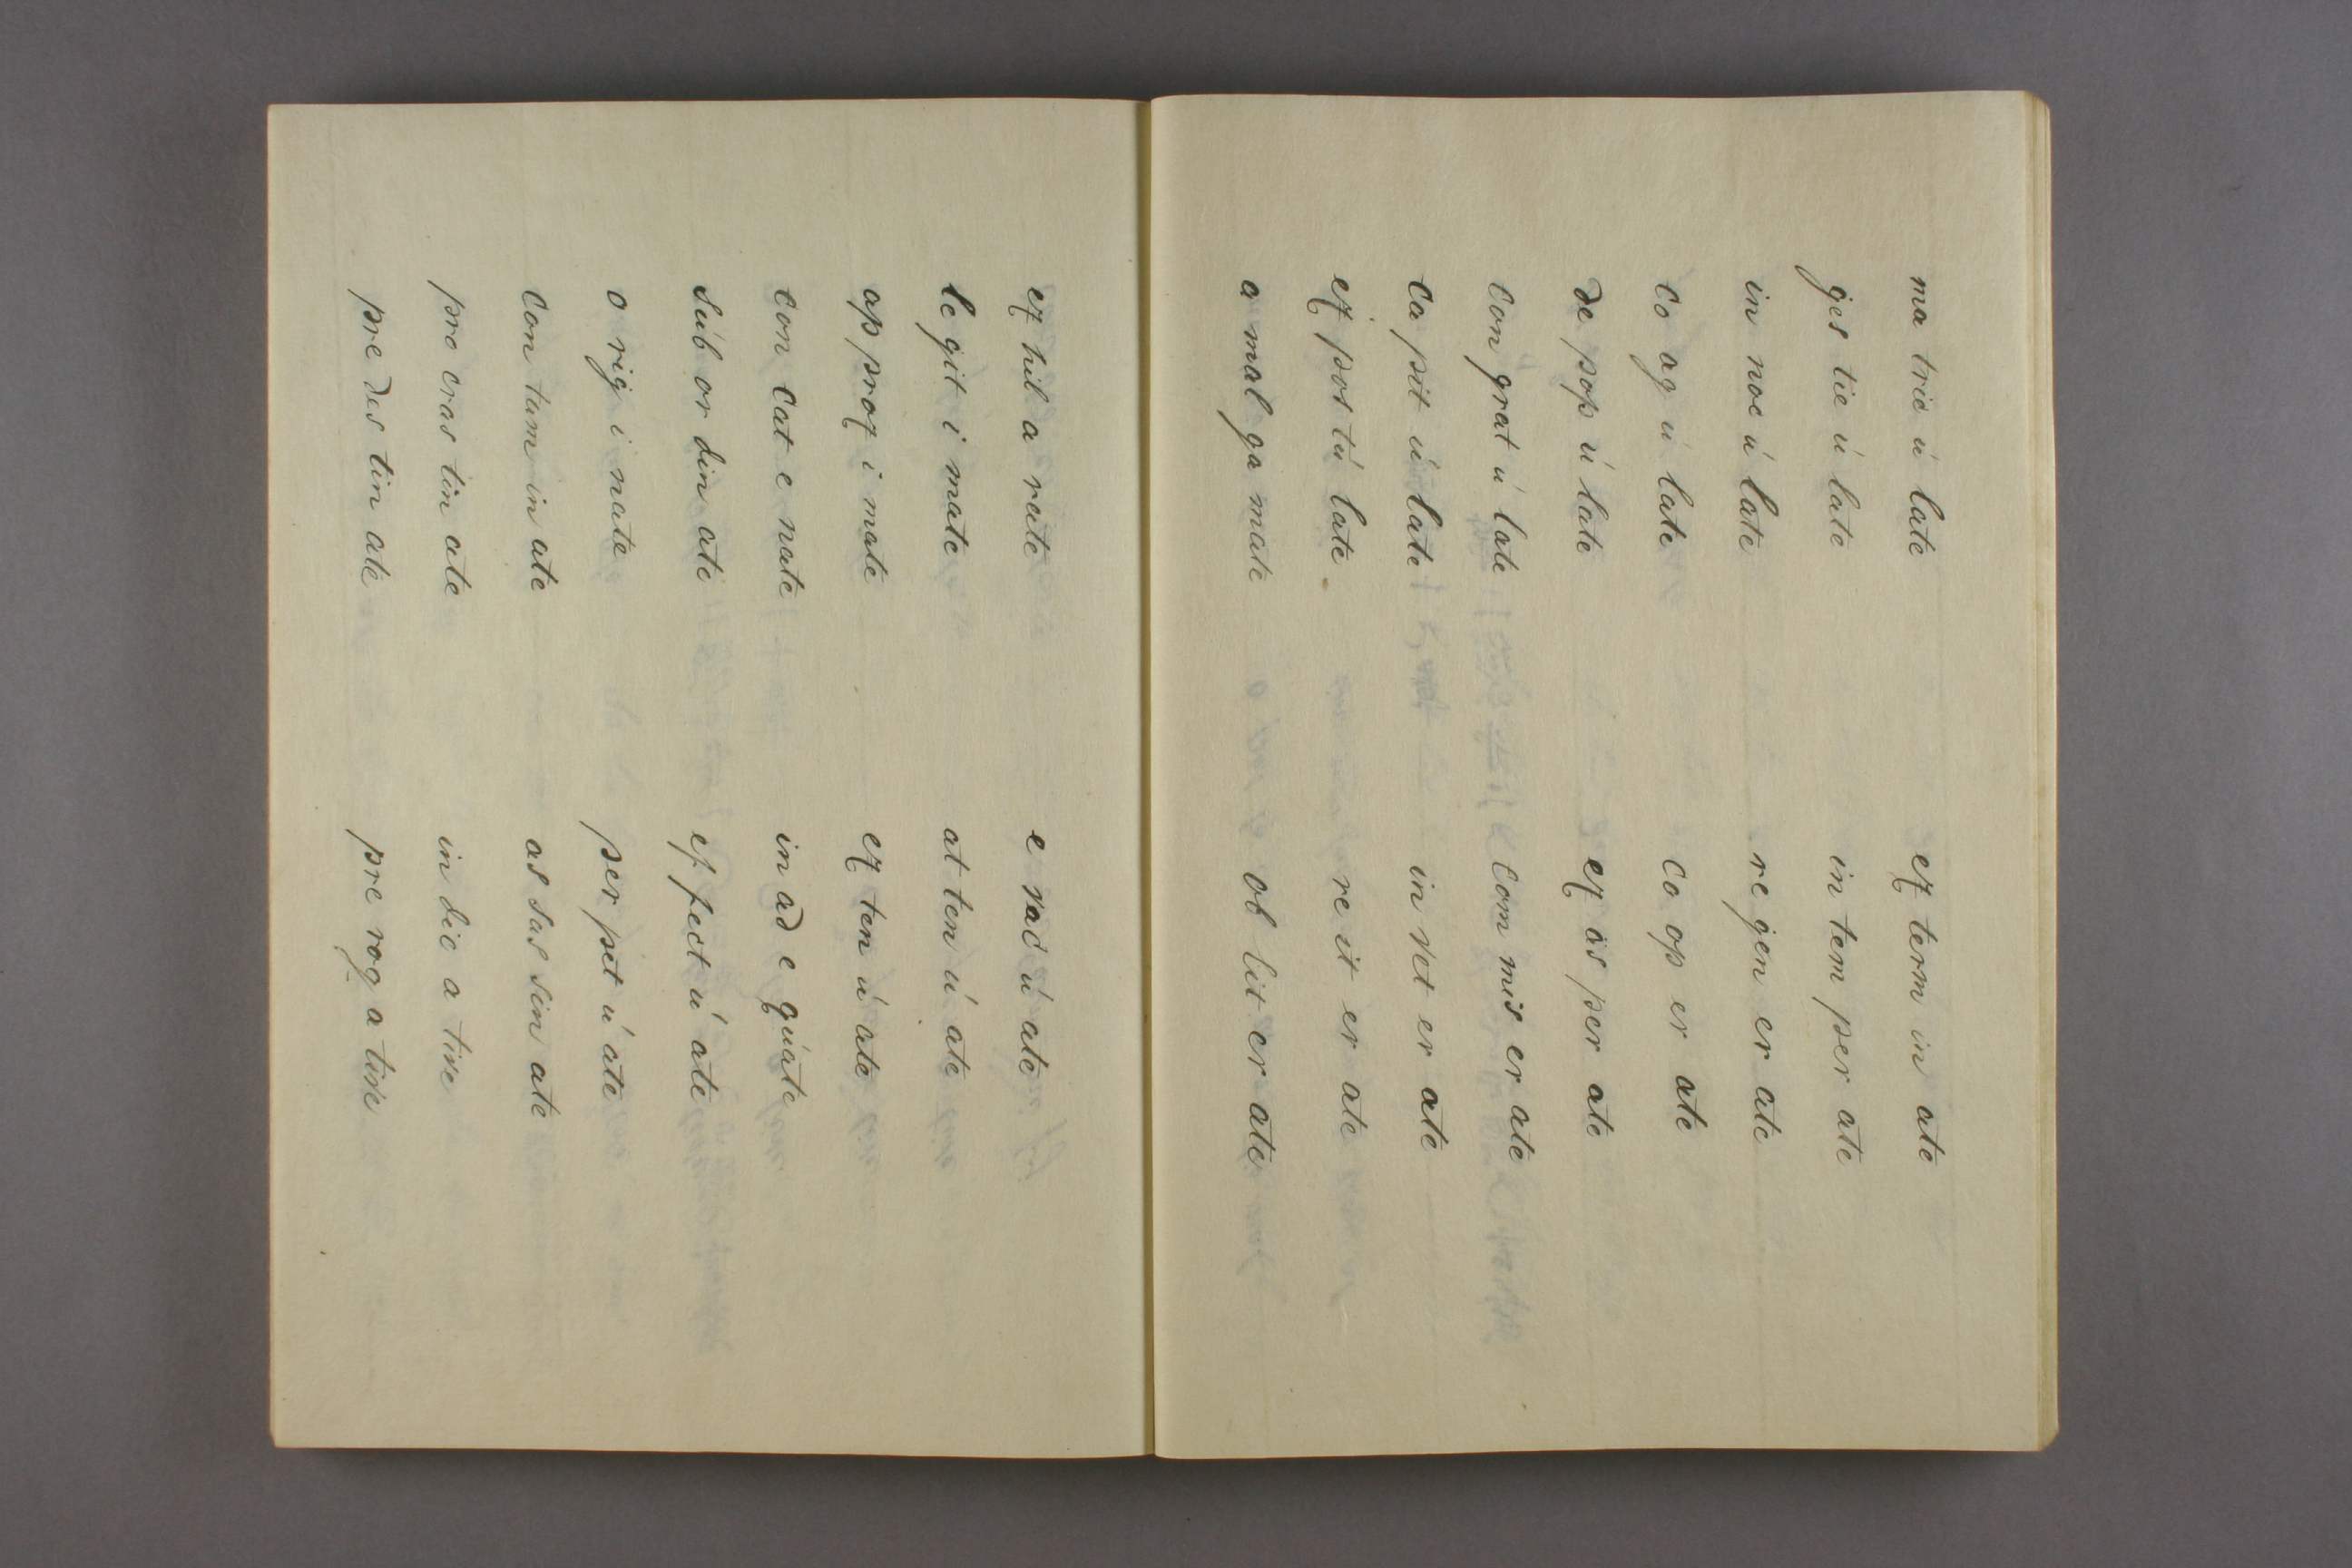 ma tric ú late ex term in ate
ges tic ú late in tem per ate
in noc ú late re gen er ate
co ag ú late co op er ate
de pop ú late ex as per ate
con grat ú late com mis er ate
ca pit ú late in vet er ate
ex pos tú late re it er ate
a mal ga mate ob lit er ate
ex hil a rate e vac ú ate
le git i mate at ten ú ate
ap prox i mate ex ten ú ate
con cat e nate in ad e qúate
súb or din ate ef fect ú ate
o rig i nate per pet ú ate
con tam in ate as sas sin ate
pro cras tin ate in dic a tive
pre des tin ate pre rog a tive